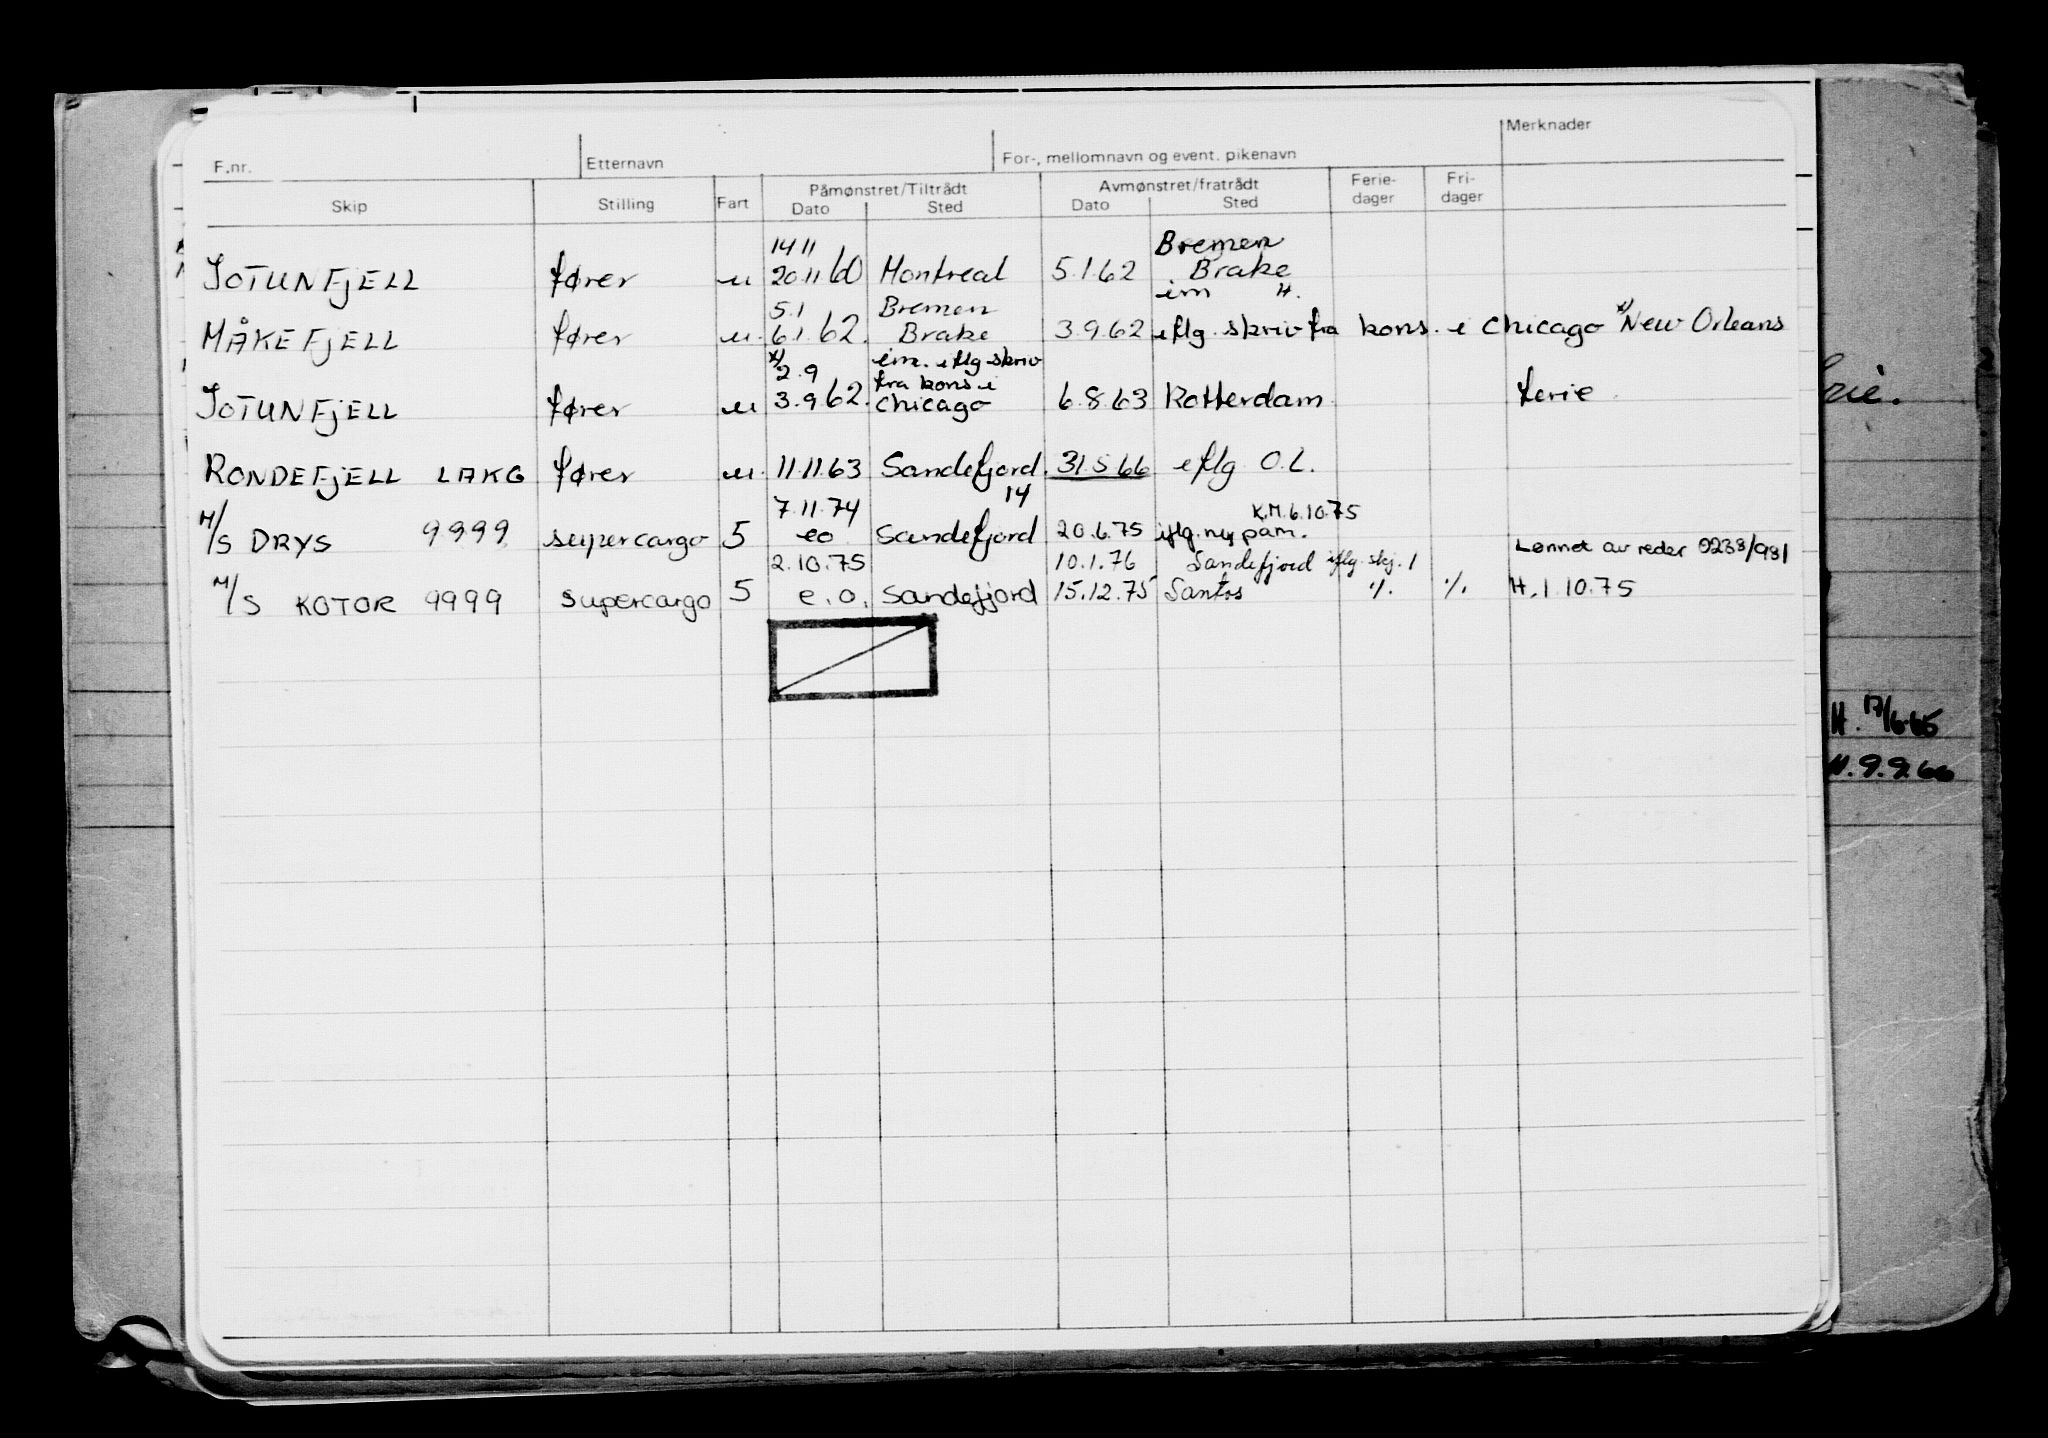 Merknader
F.nr. Etternavn For-, mellomnavn og event. pikenavn
Påmønstret/Tiltrådt Avmønstret/fratrådt Ferie- Fri-
Skip Stilling Fart Dato Sted Dato Sted dager dager
14 11 Bremen
JOTUNFJELL fører u 20.11.60 Montreal 5.1.62 Brake
5.1 Bremen im H.
MÅKEFJELL fører u. 6.1.62. Brake 3.9.62 eflg. skriv fra kons. i Chicago x) New Orleans
x) 2.9 im. eflg skriv
fra kons i
JOTUNFJELL fører u 3.9.62. Chicago 6.8.63 Rotterdam ferie
RONDEFJELL LAKG fører u. 11.11.63 Sandefjord. 31.5.66 eflg O.L.
7.11.74 14 K.M. 6.10.75
M/S DRYS 9999 supercargo 5 eo Sandefjord 20.6.75 iflg. ny påm.
2.10.75 10.1.76 Sandefjord iflg. skj. 1 Lønnet av reder 0238/931
M/S KOTOR 9999 supercargo 5 e.o. Sandefjord 15.12.75 Santos ·/. ·/. H.1.10.75
H. 17/6-65
H. 9.9.66